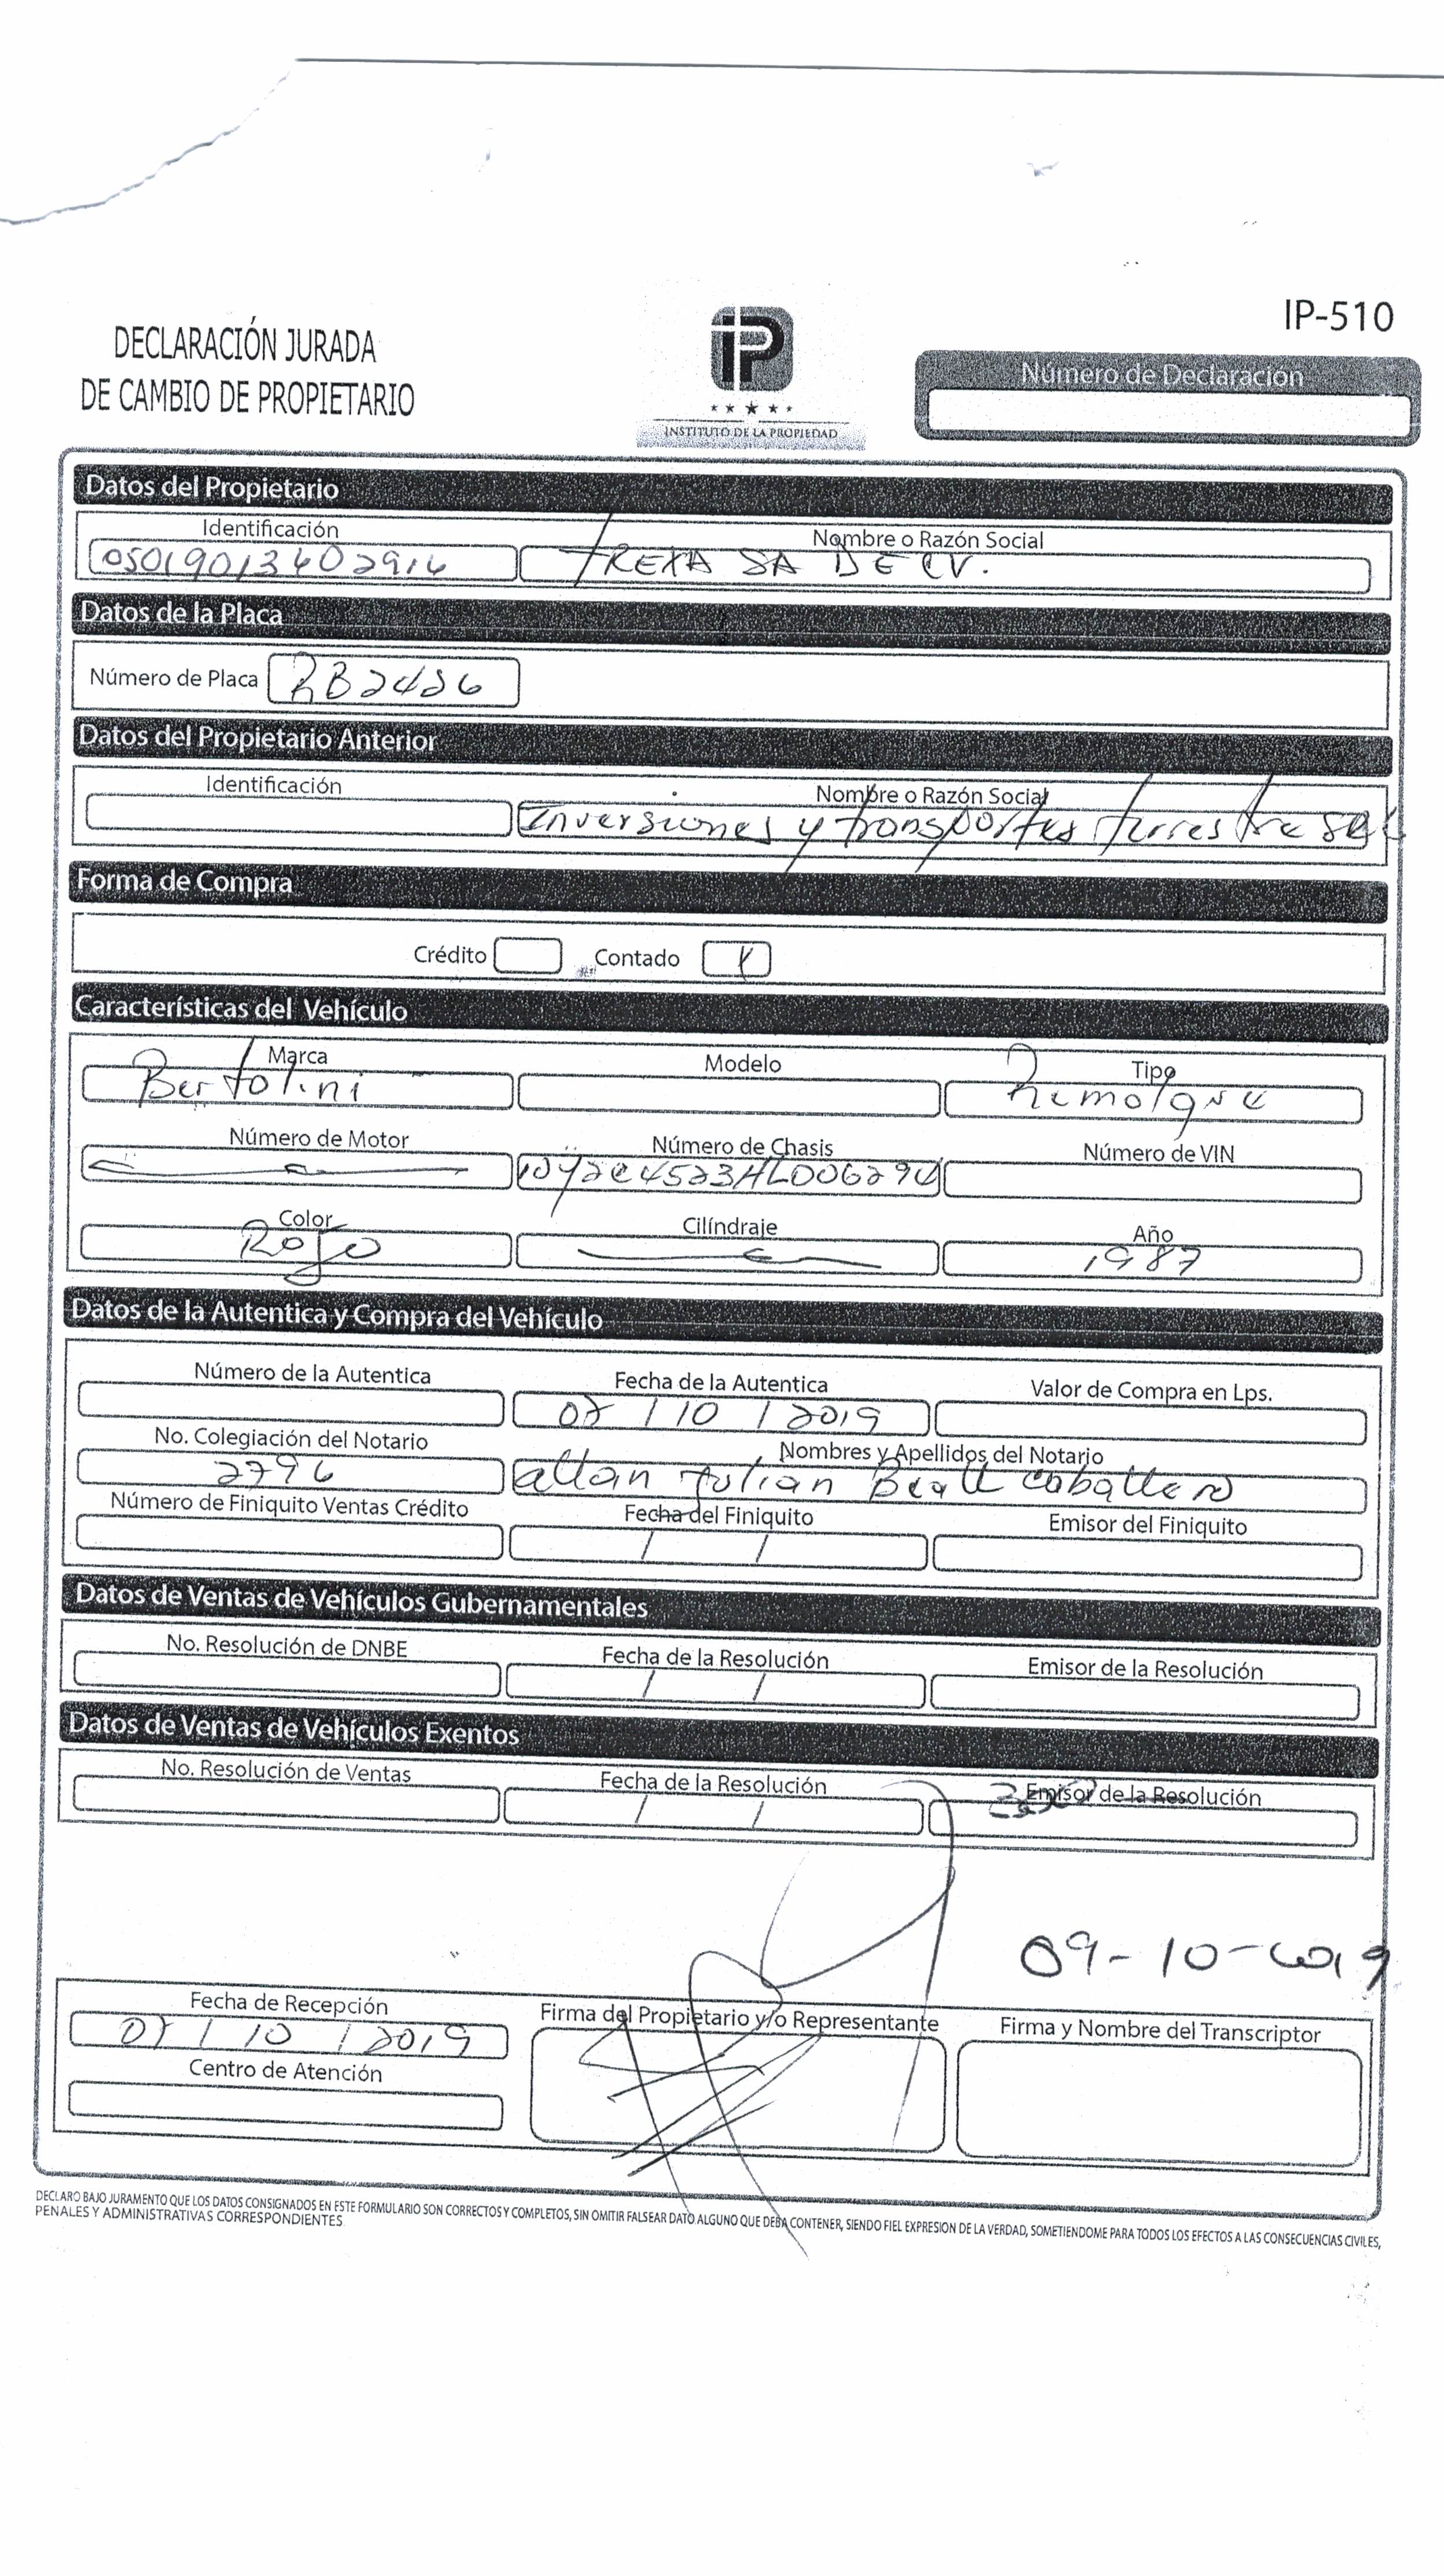 IP-510
DECLARACIÓN JURADA
DE CAMBIO DE PROPIETARIO
iP
INSTITUTO DE LA PROPIEDAD
Número de Declaración
Datos del Propietario
Identificación Nombre o Razón Social
TREXA SA DE CV.
Datos de la Placa
Número de Placa RB2426
Datos del Propietario Anterior
Identificación Nombre o Razón Social
Inversiones y transportes terrestre
Forma de Compra
Crédito Contado X
Características del Vehículo
Marca Modelo Tipo
Bertolini Remolque
Número de Motor Número de Chasis Número de VIN
Color Cilíndraje Año
Rojo 1987
Datos de la Autentica y Compra del Vehículo
Número de la Autentica Fecha de la Autentica Valor de Compra en Lps.
/ 10 / 2019
No. Colegiación del Notario Nombres y Apellidos del Notario
2796 allan Julian Caballero
Número de Finiquito Ventas Crédito Fecha del Finiquito Emisor del Finiquito
/ /
Datos de Ventas de Vehículos Gubernamentales
No. Resolución de DNBE Fecha de la Resolución Emisor de la Resolución
/ /
Datos de Ventas de Vehículos Exentos
No. Resolución de Ventas Fecha de la Resolución Emisor de la Resolución
/ /
09-10-2019
Fecha de Recepción Firma del Propietario y/o Representante Firma y Nombre del Transcriptor
/ 10 / 2019
Centro de Atención
DECLARO BAJO JURAMENTO QUE LOS DATOS CONSIGNADOS EN ESTE FORMULARIO SON CORRECTOS Y COMPLETOS, SIN OMITIR FALSEAR DATO ALGUNO QUE DEBA CONTENER, SIENDO FIEL EXPRESION DE LA VERDAD, SOMETIENDOME PARA TODOS LOS EFECTOS A LAS CONSECUENCIAS CIVILES,
PENALES Y ADMINISTRATIVAS CORRESPONDIENTES